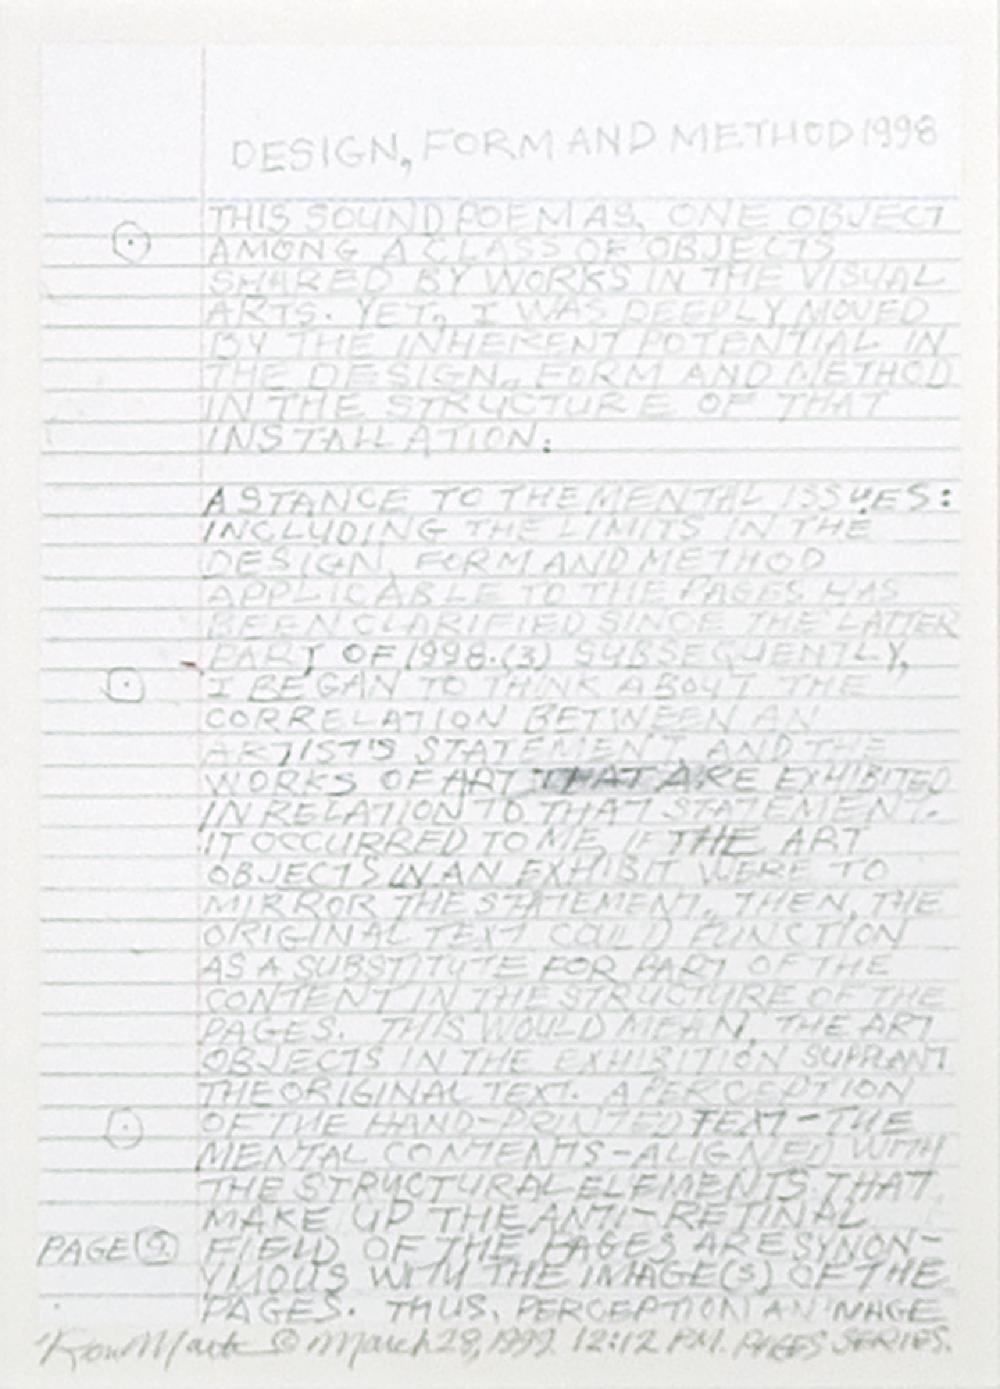 DESIGN, FORM AND METHOD 1998
THIS SOUND POEM AS, ONE OBJECT
AMONG A CLASS OF OBJECTS
SHARED BY WORKS IN THE VISUAL
ARTS. YET, I WAS DEEPLY MOVED
BY THE INHERENT POTENTIAL IN
THE DESIGN, FORM AND METHOD
IN THE STRUCTURE OF THAT
INSTALLATION:
A STANCE TO THE MENTAL ISSUES:
INCLUDING THE LIMITS IN THE
DESIGN, FORM AND METHOD
APPLICABLE TO THE PAGES HAS
BEEN CLARIFIED SINCE THE LATTER
PART OF 1998.(3) SUBSEQUENTLY,
I BEGAN TO THINK ABOUT THE
CORRELATION BETWEEN AN
ARTIST'S STATEMENT AND THE
WORKS OF ART THAT ARE EXHIBITED
IN RELATION TO THAT STATEMENT.
IT OCCURRED TO ME, IF THE ART
OBJECTS IN AN EXHIBIT WERE TO
MIRROR THE STATEMENT, THEN, THE
ORIGINAL TEXT COULD FUNCTION
AS A SUBSTITUTE FOR PART OF THE
CONTENT IN THE STRUCTURE OF THE
PAGES. THIS WOULD MEAN, THE ART
OBJECTS IN THE EXHIBITION SUPPLANT
THE ORIGINAL TEXT. A PERCEPTION
OF THE HAND-PRINTED TEXT-THE
MENTAL CONTENTS-ALIGNED WITH
THE STRUCTURAL ELEMENTS THAT
MAKE UP THE ANTI-RETINAL
PAGE 9 FIELD OF THE PAGES ARE SYNON-
YMOUS WITH THE IMAGE(S) OF THE
PAGES. THUS, PERCEPTION AN IMAGE
© March 28, 1999 12:12 PM. PAGES SERIES.